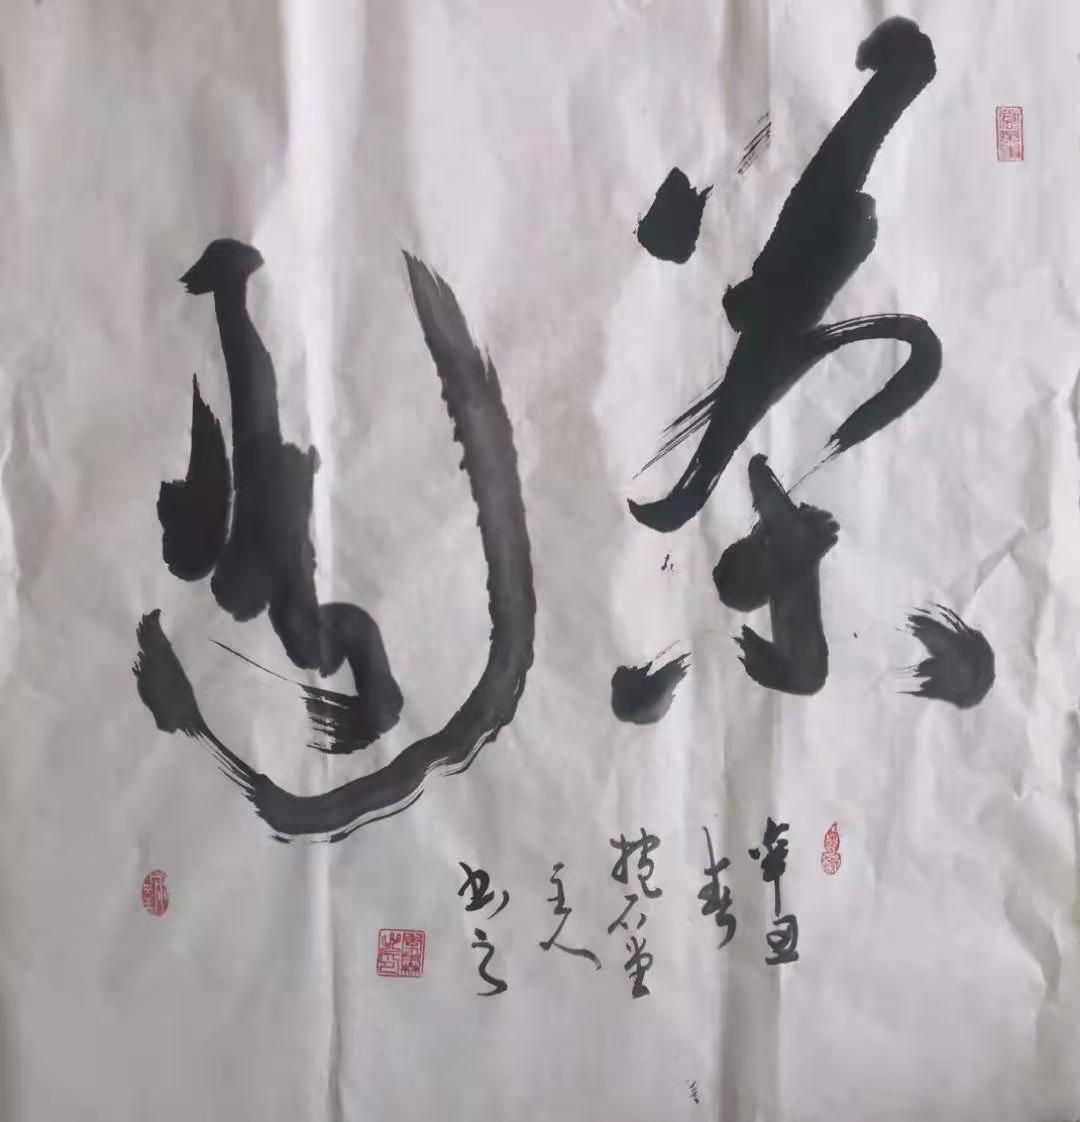 茶道
辛丑
春
抱石堂
主人
书之